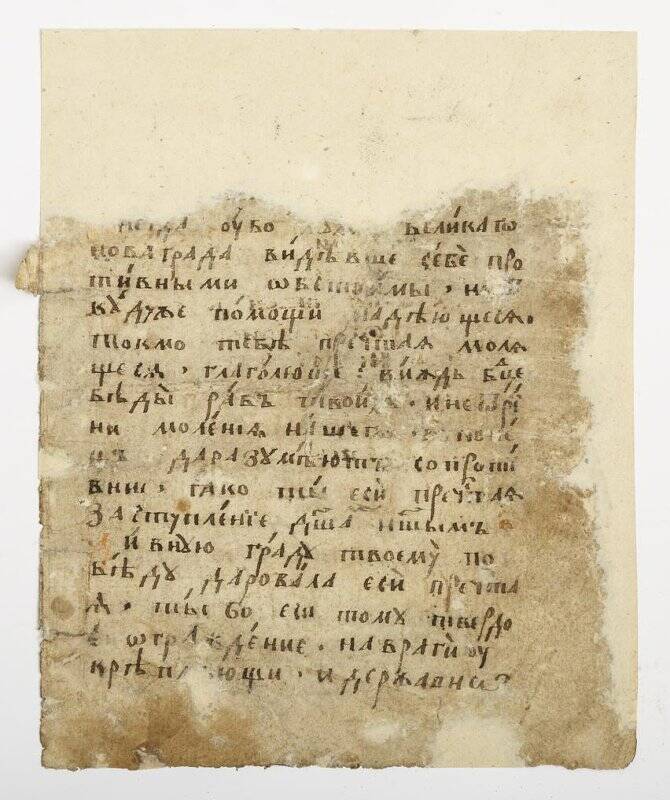 оубо великаго
новаграда видѣвше себе про
тивными
кꙋдꙋже помощи надѣющеся.
токмо тебѣ пречтая моля
щеся. глаголюще виждь бце
бѣды рабъ твоихъ. и не
ни моленія нашего
даразꙋмѣютъ сопроти
вніи. гако ты еси пречтая
застꙋпленіе дша ншымъ
ивнꙋю градꙋ твоемꙋ по
бѣдꙋ даровала еси пречта
я. ты бо еси томꙋ твердо
ѡгражденіе. на враги оу
крѣпляющи. и державнѡ